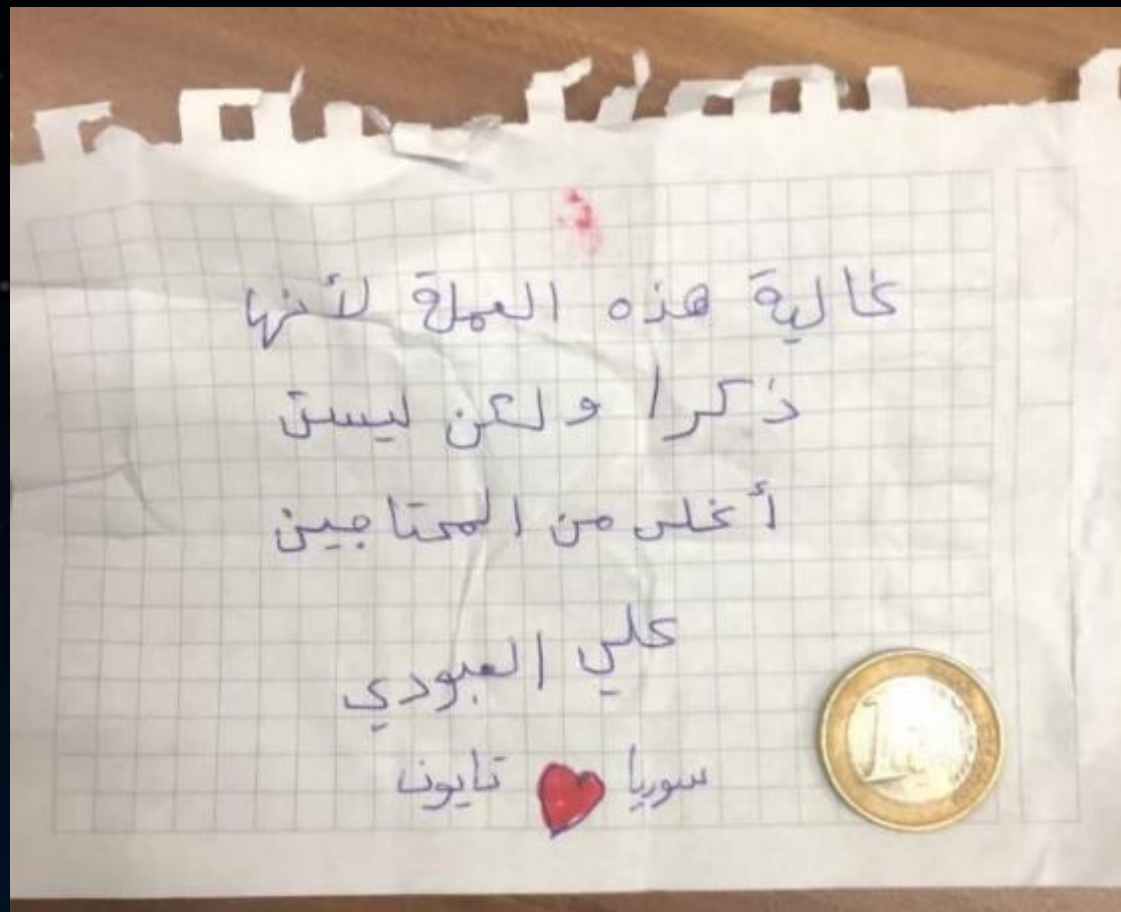 غالية هذه العملة لأنها
ذكرا ولكن ليست
أغلى من المحتاجين
علي العبودي
سوريا ❤ تايوت
1